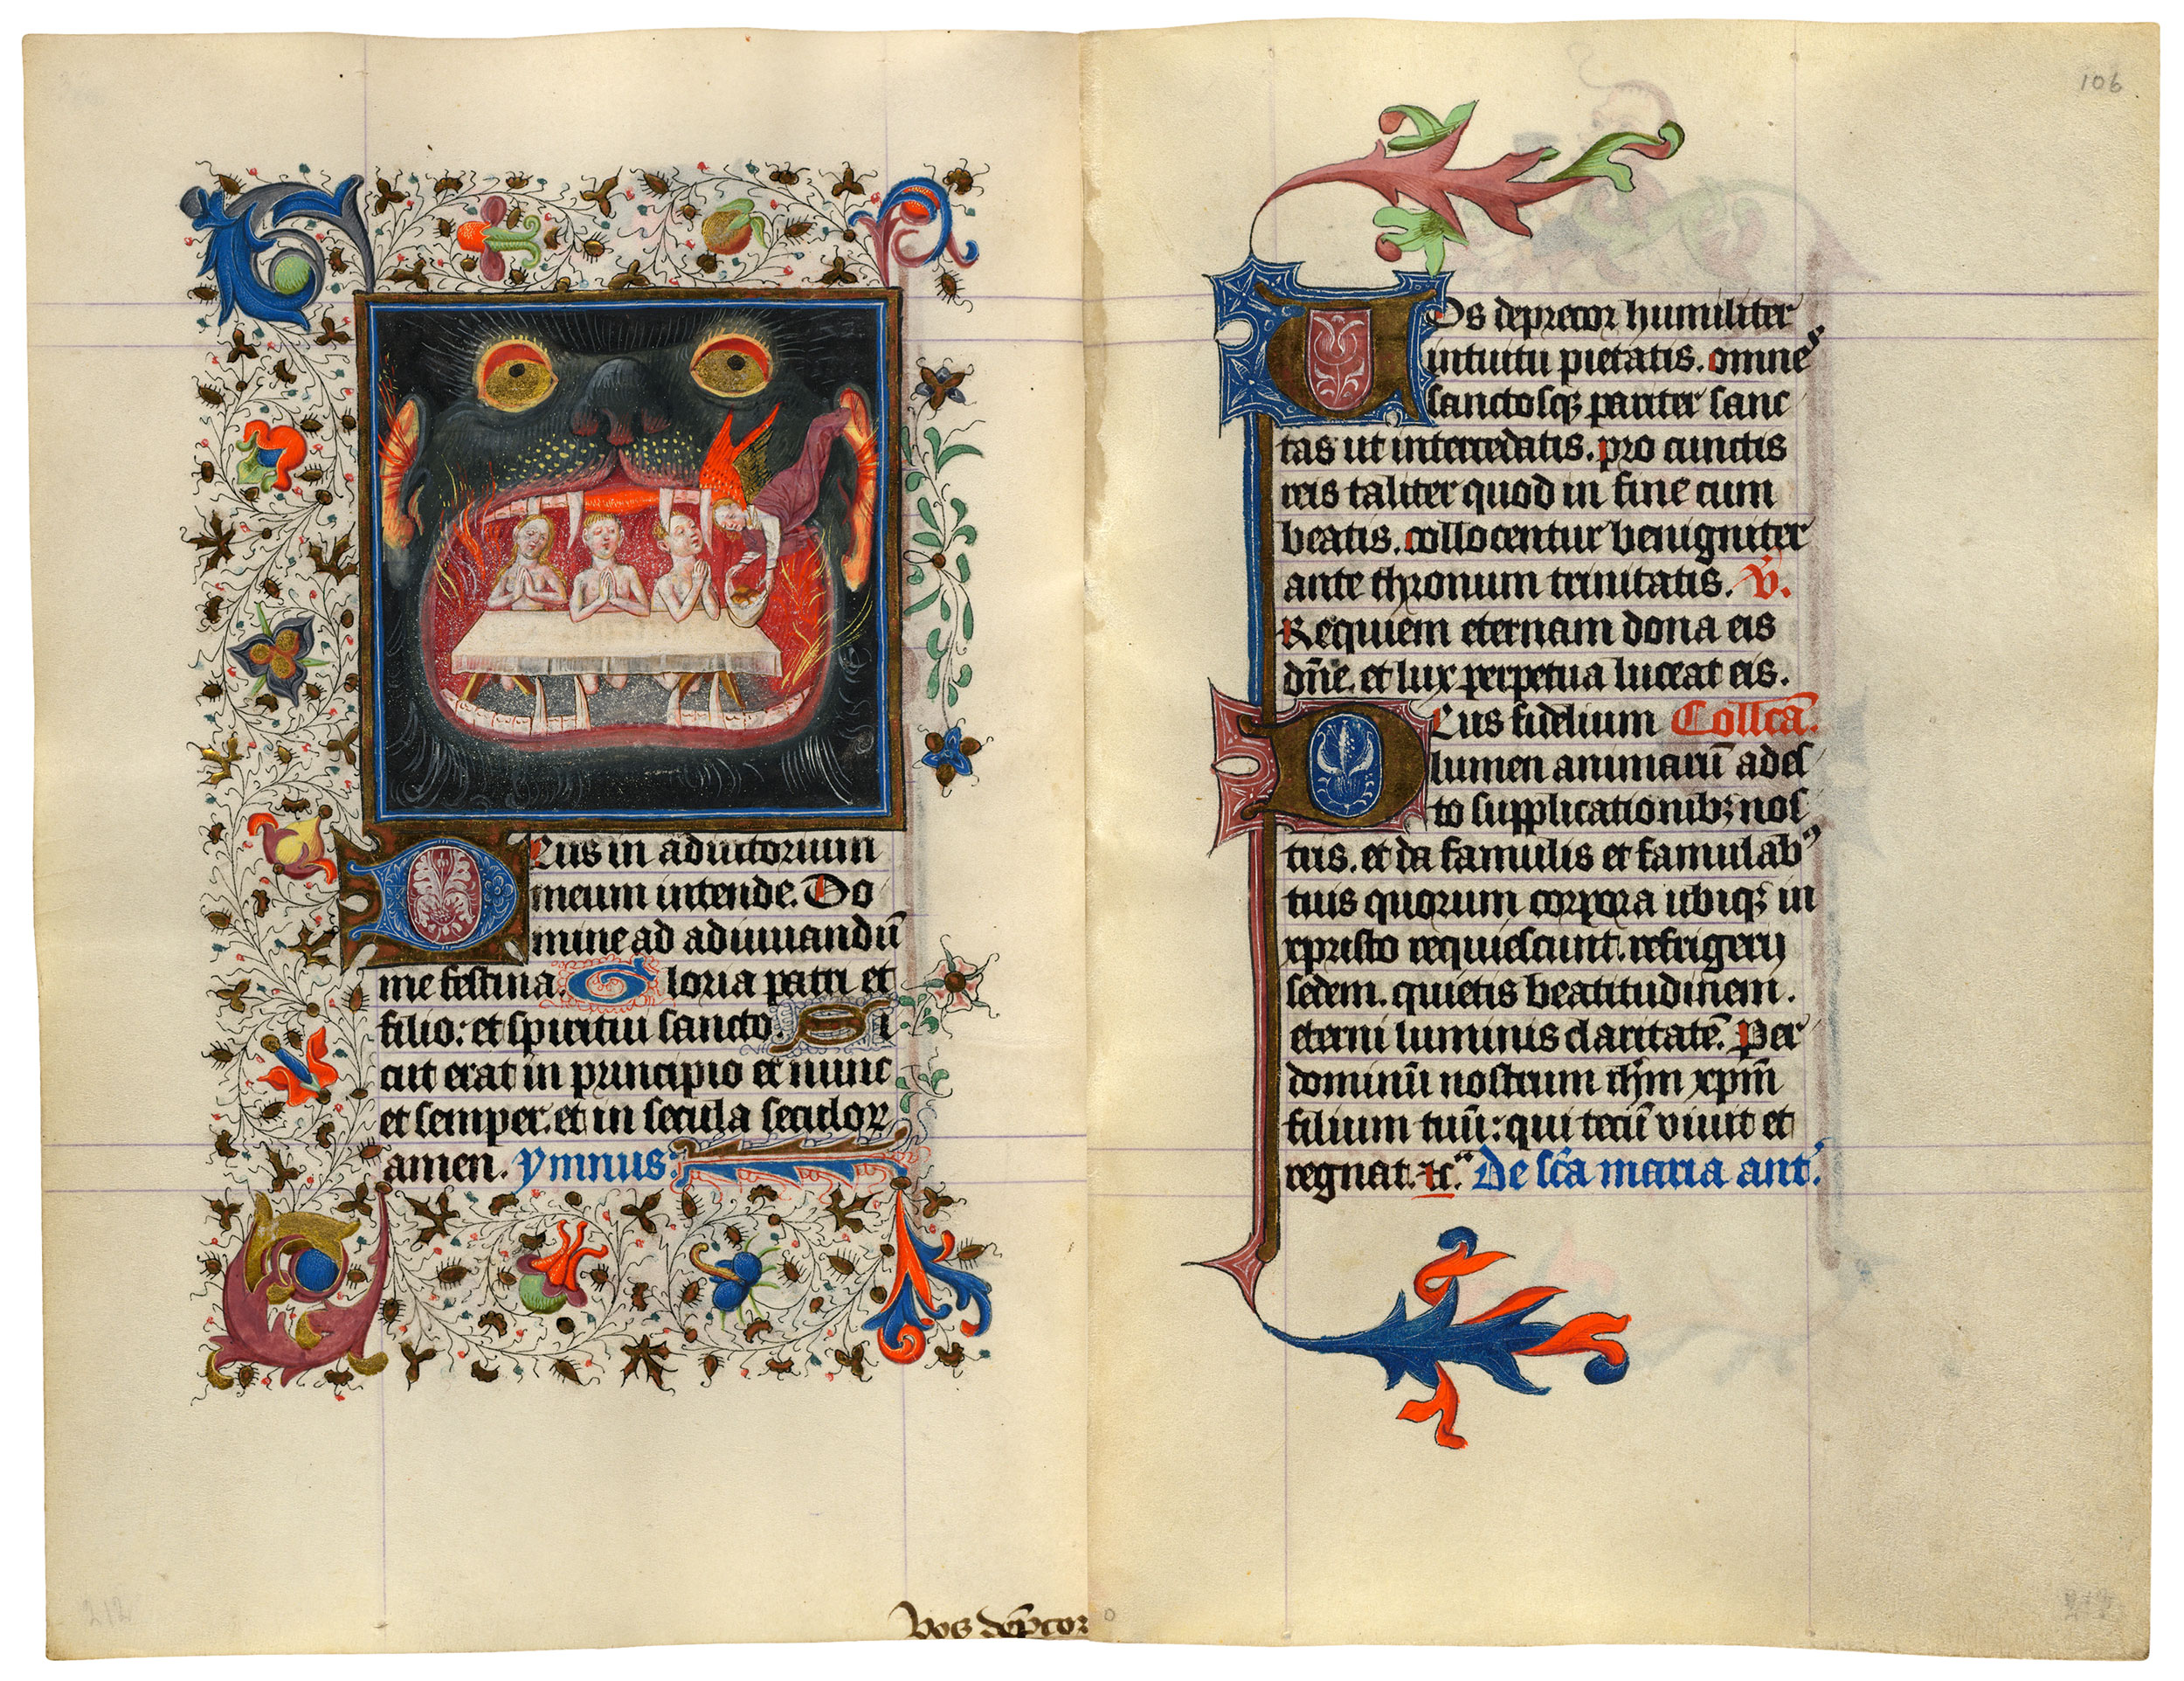 Deus in adiutorium
meum intende. Do
mine ad adiuuandū
me festina. Gloria patri et
filio: et spiritui sancto. Si
cut erat in principio et nunc
et semper. et in secula seculoꝝ
amen. ymnus:
vos dep̄cor
106
Uos deprecor humiliter
intuitu pietatis. omnes
sanctosqꝫ pariter sanc
tas ut intercedatis. pro cunctis
reis taliter quod in fine cum
beatis. collocentur benigniter
ante thronum trinitatis. v̄.
Requiem eternam dona eis
dn̄e. et lux perpetua luceat eis.
Deus fidelium Coll̄ca.
lumen animarū ades
to supplicationibꝫ nos
tris. et da famulis et famulabꝰ
tuis quorum corpora ubiqꝫ in
xpristo requiescunt. refrigerij
sedem. quietis beatitudinem.
eterni luminis claritatē. Per
dominū nostrum ihm̄ xpm̄
filium tuū: qui tecū viuit et
regnat. ⁊c. De sc̄a maria ant.
212